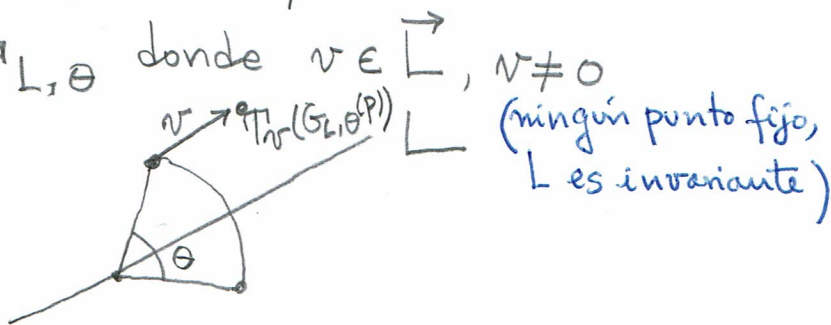 L,θ donde v ∈ L⃗, v ≠ 0
v T_v(G_{L,θ}(P)) L (ningún punto fijo,
L es invariante)
θ